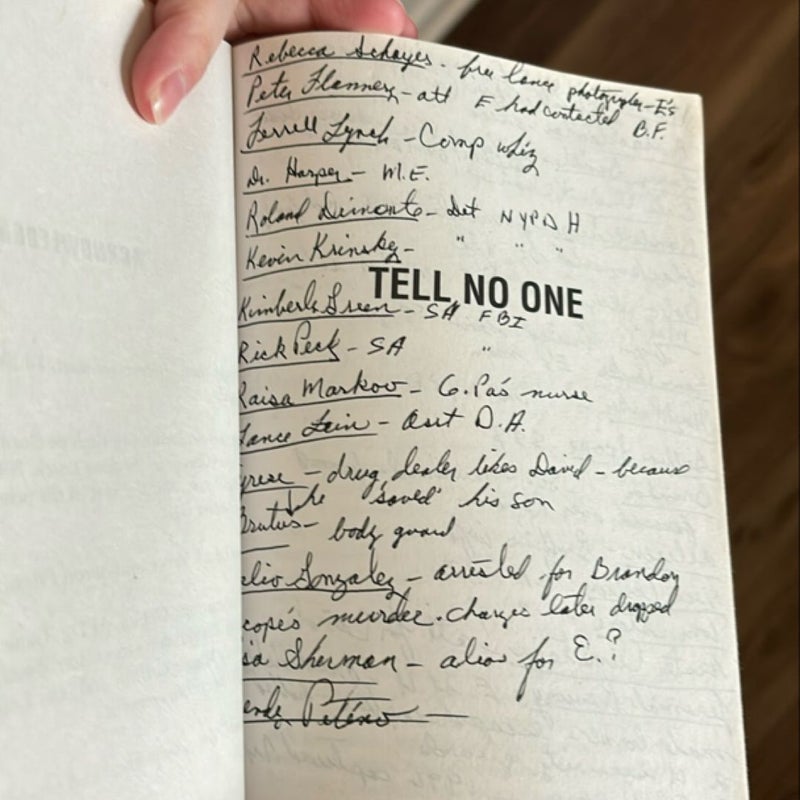 Rebecca Schayes - free lance photographer - E's
Peter Flannery - att E had contacted B.F.
Terrell Lynch - Comp whiz
Dr. Harper - M.E.
Roland Dimonte - Det NYPD H
Kevin Krinsky - " " "
TELL NO ONE
Kimberly Green - SA FBI
Rick Peck - SA "
Raisa Markov - G. Pa's nurse
Lance Fein - Asst D.A.
yrese - drug dealer likes David - because
he "saved" his son
Brutus - body guard
elio Gonzalez - arrested for Brandon
cope's murder. charges later dropped
sa Sherman - alias for E.?